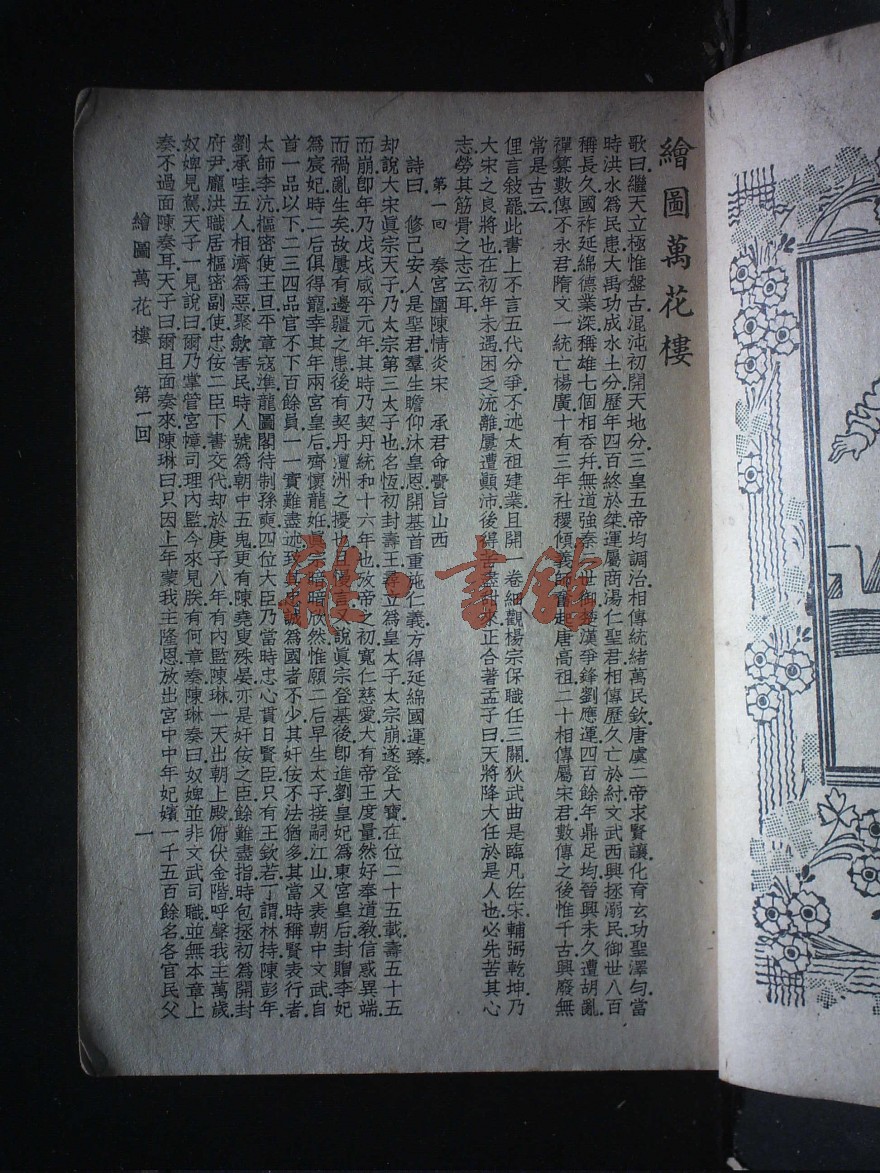 繪圖萬花樓
歌曰.繼天立極惟盤古.混沌初開天地分.三皇五帝均調治.相傳統緒萬民欽.唐虞二帝求賢讓.化育玄功聖澤勻.當
時洪水為民患.大禹功成水土分.歷年四百終於桀.運屬商湯仁聖君.相傳歷久亡於紂.文武西興拯溺民.御世八百
稱長久.國祚延綿德業深.稱雄七個相吞幷.無道強秦 世御.楚漢爭鋒劉應運.四百餘年鼎足均.晉興未久遭胡亂.
禪篡數傳不永君.隋文一統亡楊廣.十有三年社稷傾.義師奮起唐高祖.二十相傳屬宋君.數傳之後惟千古.興廢無
常是古云.
俚言敍罷.此書上不言五代分爭.不述太祖建業.且開一卷.細觀楊宗保職任三關.狄武曲是臨凡佐宋.輔弼乾坤.乃
大宋之良將也.在初年未遇.困乏流離.屢遭顚沛.後得 來.正合著孟子曰.天將降大任於是人也.必先苦其心
志.勞其筋骨之志云耳.
第一回 奏宮闈陳情炎宋 承君命賷旨山西
詩曰. 修己安人是聖君.羣生瞻仰沐皇恩.開基首重施仁義.方得延綿國運臻.
却說大宋眞宗天子.乃太宗第三太子也.名恆.初封壽王.尋立為皇太子.太宗崩.遂登大寶.在位二十五載.壽五十五
而崩.卽年乃戊戌咸平元年.其時乃契丹統和十六年也.攷帝之初.寬仁慈愛.大有帝王度量.然好奉道敎.信惑異端.
而禍亂生矣.故屢有邊疆之患.後有契丹澶洲之擾也.且 言 說眞宗登基後.卽進劉皇妃為東宮皇后.封贈李妃
為宸妃.時二后俱得寵幸.其年兩宮皇后齊懷龍姙.眞宗暗暗欣然.惟願二后早生太子.接嗣江山.又表朝中文武.自
首一品以下.二三四品官.不下百餘員.一一實難盡述.致 忠誠為國者不少.其奸佞不法猶多.其當時稱賢表行者.
太師李沆.樞密使王旦.平章寇準.龍圖閣待制孫奭.四位大臣.乃當時忠心貫日賢臣.只有王欽若.丁謂.林持.陳彭年.
劉承哇.五人相濟為惡.聚歛害民.時人號為朝中五鬼.更有陳堯叟.殊晏.亦是奸佞之臣.餘難盡指.時包拯初為開封
府尹.龐洪職居樞密副使.忠佞二臣.下書交代.却於庚子八年.有內監陳琳.一天出朝上殿.俯伏金階.呼聲我主萬歲.
奴婢見駕.天子一見.說曰.爾乃掌管宮幃司理內監.今來見朕.有何章奏.陳琳奏曰.奴婢並非文武司職.並無本章上
奏.不過面陳奏耳.天子曰.爾且面奏來.陳琳曰.只因上年蒙我王隆恩.放出宮中中年妃嬪一千五百餘名.各官民父
繪圖萬花樓 第一回 一
雜·書館